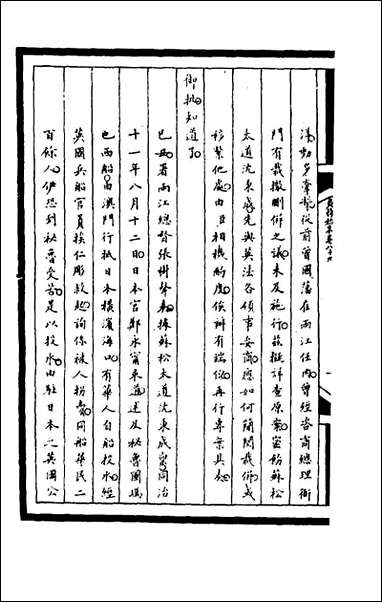 蕩動多牽掣從前曾國藩在兩江任內曾經咨商總理衙
門有裁撤刪併之議未及施行茲擬詳查原案密飭蘇松
太道沈秉成先與英法各領事妥商應如何簡閱裁併或
移繫他處由臣相機酌度俟辦有端倪再行專案具奏
御批知道了
己丑署兩江總督張樹聲奏據蘇松太道沈秉成稟同治
十一年八月十二日日本官鄭永甯來道述及秘魯國瑪
也西船由澳門行抵日本橫濱海口有華人自船投水經
英國兵船官員挨仁彫救起詢係被人拐賣同船華民二
百餘人伊恐到秘魯受苦是以投水由駐日本之英國公